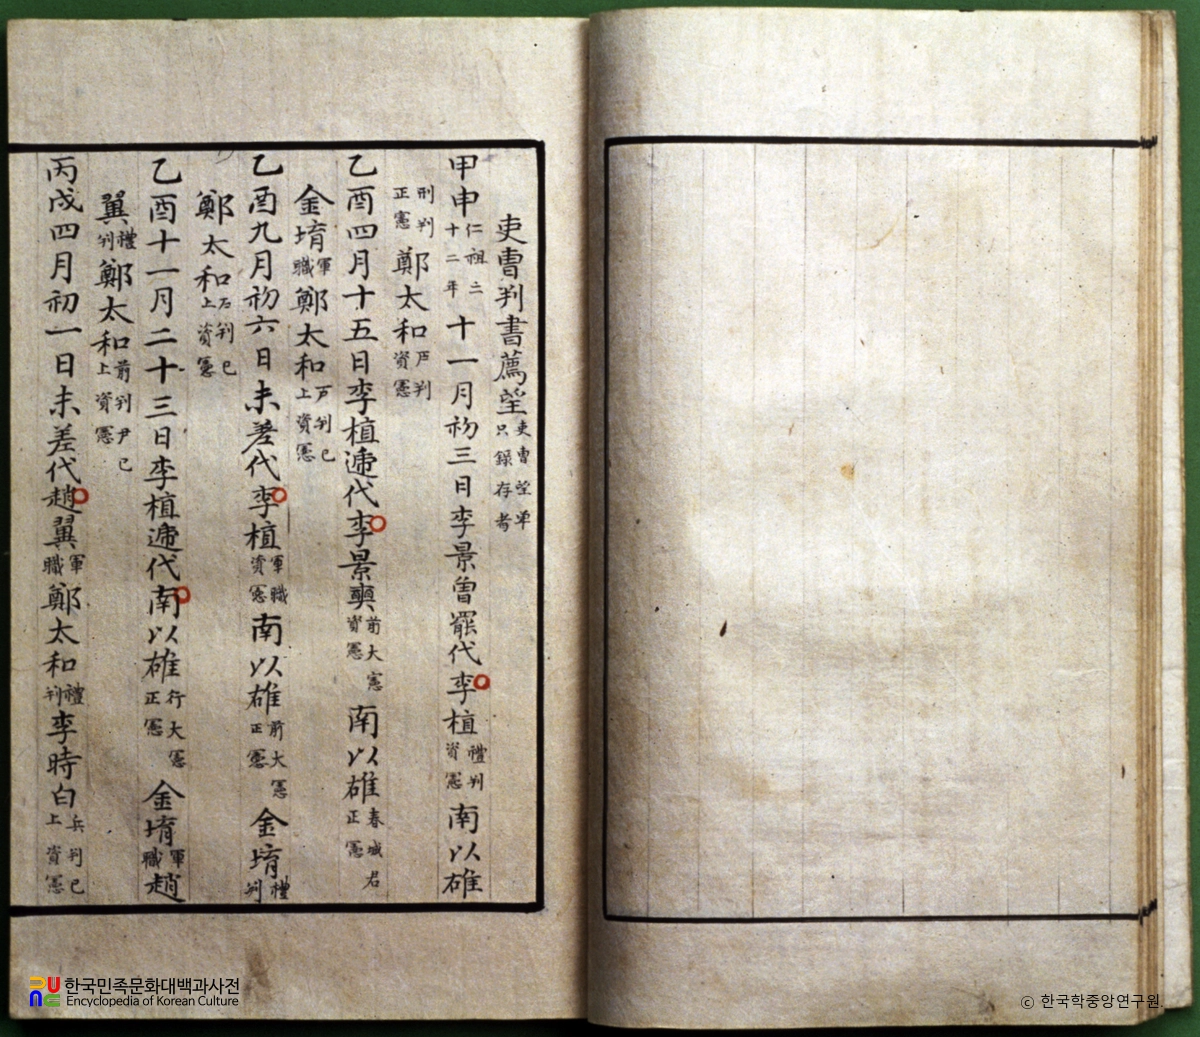 吏曹判書薦望吏曹望單只錄存者
甲申仁祖二十二年十一月初三日李景曾罷代李植禮判資憲南以雄
刑判正憲鄭太和戶判資憲
乙酉四月十五日李植遞代李景奭前大憲資憲南以雄春城君正憲
金堉軍職鄭太和戶判已上資憲
乙酉九月初六日未差代李植軍職資憲南以雄前大憲正憲金堉禮判
鄭太和戶判已上資憲
乙酉十一月二十三日李植遞代南以雄行大憲正憲金堉軍職趙
翼禮判鄭太和前判尹已上資憲
丙戌四月初一日未差代趙翼軍職鄭太和禮判李時白兵判已上資憲
한국민족문화대백과사전
Encyclopedia of Korean Culture
© 한국학중앙연구원.